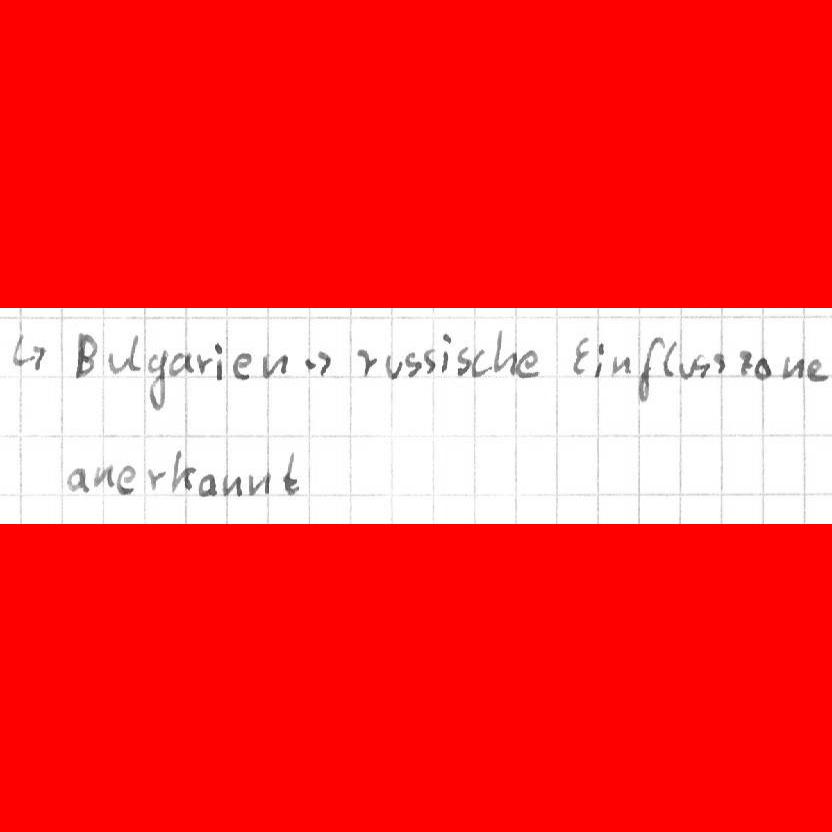 ↳ Bulgarien → russische Einflusszone
anerkannt